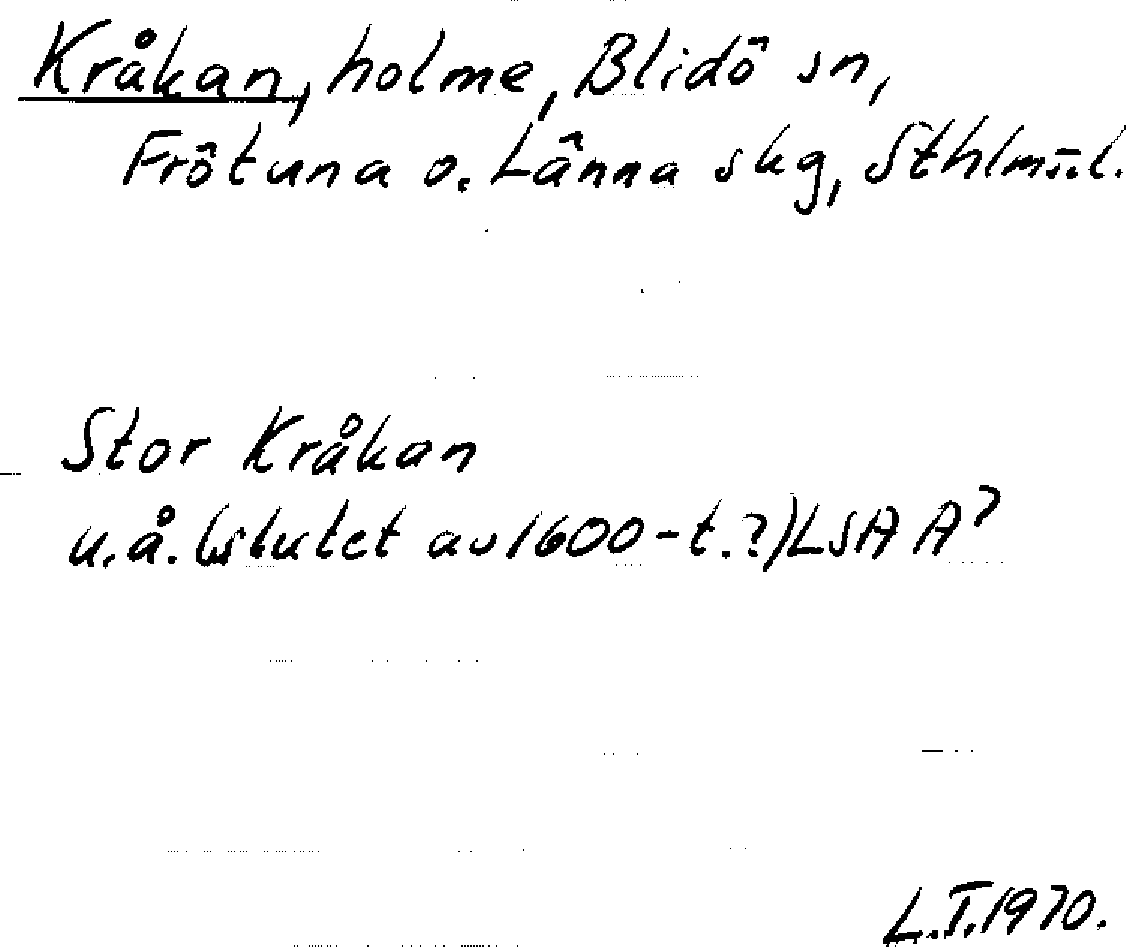 Kråkan, holme, Blidö sn,
Frötuna o. Länna skg, Sthlms l.
Stor Kråkan
u.å. (slutet av 1600-t.?) LSA A7
L.I. 1970.